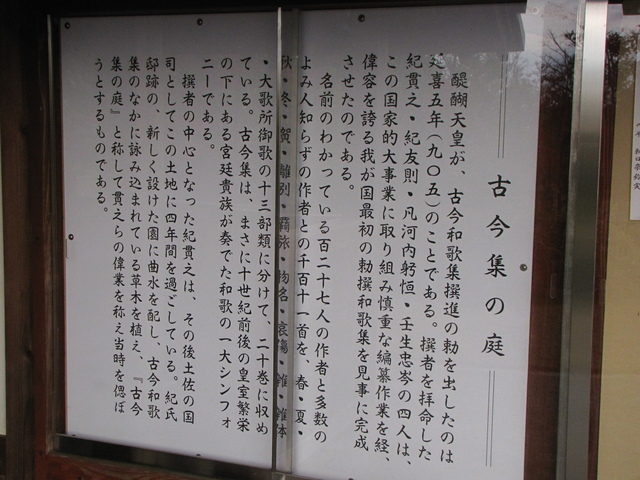 古今集の庭
醍醐天皇が、古今和歌集撰進の勅を出したのは
延喜五年(九〇五)のことである。撰者を拝命した
紀貫之・紀友則・凡河内躬恒・壬生忠岑の四人は、
この国家的大事業に取り組み慎重な編纂作業を経、
偉容を誇る我が国最初の勅撰和歌集を見事に完成
させたのである。
名前のわかっている百二十七人の作者と多数の
よみ人知らずの作者との千百十一首を、春・夏・
秋・冬・賀・離別・羇旅・物名・哀傷・雑・雑体
・大歌所御歌の十三部類に分けて、二十巻に収め
ている。古今集は、まさに十世紀前後の皇室繁栄
の下にある宮廷貴族が奏でた和歌の一大シンフォ
ニーである。
撰者の中心となった紀貫之は、その後土佐の国
司としてこの土地に四年間を過ごしている。紀氏
邸跡の、新しく設けた園に曲水を配し、古今和歌
集のなかに詠み込まれている草木を植え、『古今
集の庭』と称して貫之らの偉業を称え当時を偲ぼ
うとするものである。